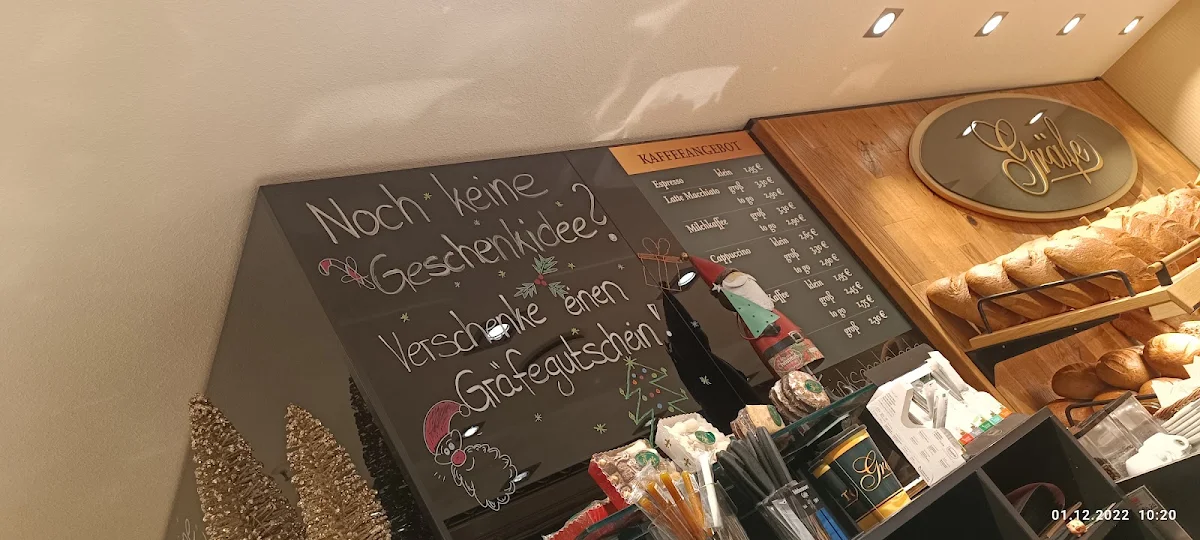 Noch keine
Geschenkidee?
Verschenke enen
Gräfegutschein!
KAFFEEANGEBOT
Espresso klein 1,95 €
Latte Macchiato groß 3,50 €
to go 2,90 €
Milchkaffee groß 3,30 €
to go 2,90 €
Cappuccino klein 2,65 €
groß 3,30 €
to go 2,90 €
Kaffee klein 1,95 €
groß 2,45 €
to go 1,75 €
groß 2,30 €
Gräfe
01.12.2022 10:20